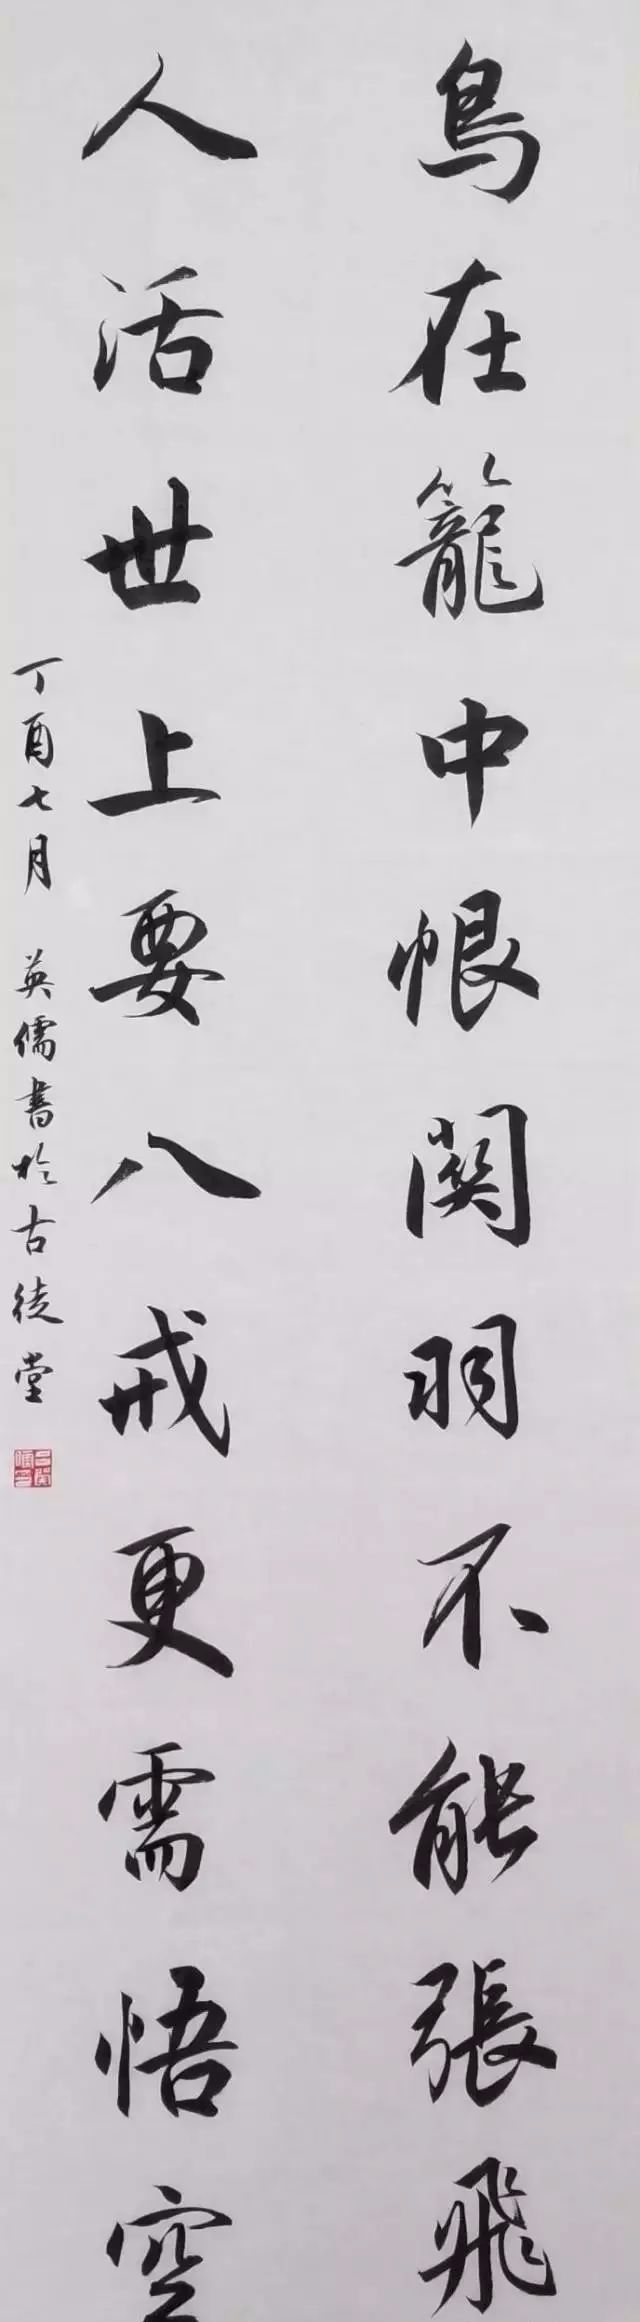 鳥在籠中恨関羽不能張飛
人活世上要八戒更需悟空
丁酉七月 英儒書於古徒堂